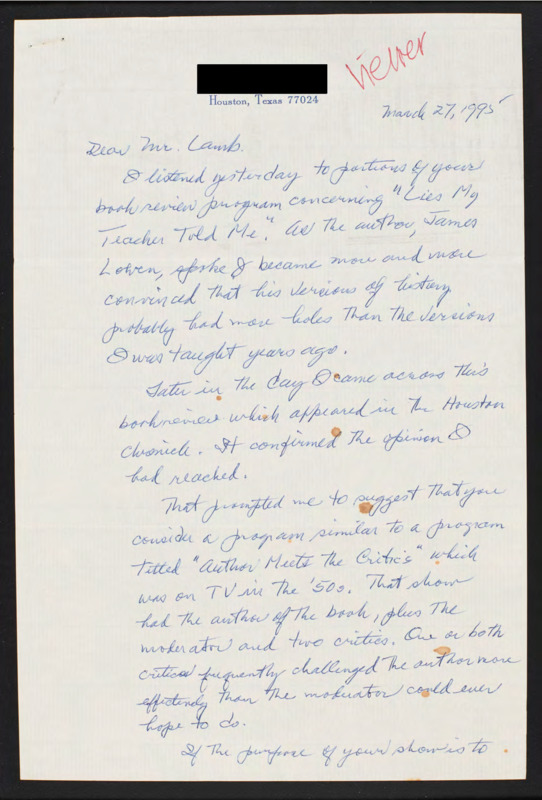 viewer
Houston, Texas 77024
March 27, 1995
Dear Mr. Lamb.
I listened yesterday to portions of your
book review program concerning "Lies My
Teacher Told Me." As the author, James
Lowen, spoke I became more and more
convinced that his versions of history
probably had more holes than the versions
I was taught years ago.
Later in the day I came across this
book review which appeared in the Houston
Chronicle. It confirmed the opinion I
had reached.
That prompted me to suggest that you
consider a program similar to a program
titled "Author Meets the Critics" which
was on TV in the '50s. That show
had the author of the book, plus the
moderator and two critics. One or both
critics frequently challenged the author more
effectively than the moderator could ever
hope to do.
If the purpose of your show is to